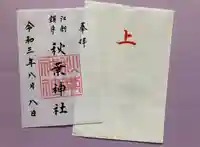 奉拝
江刺
鎮座
秋葉神社
令和三年八月八日
上